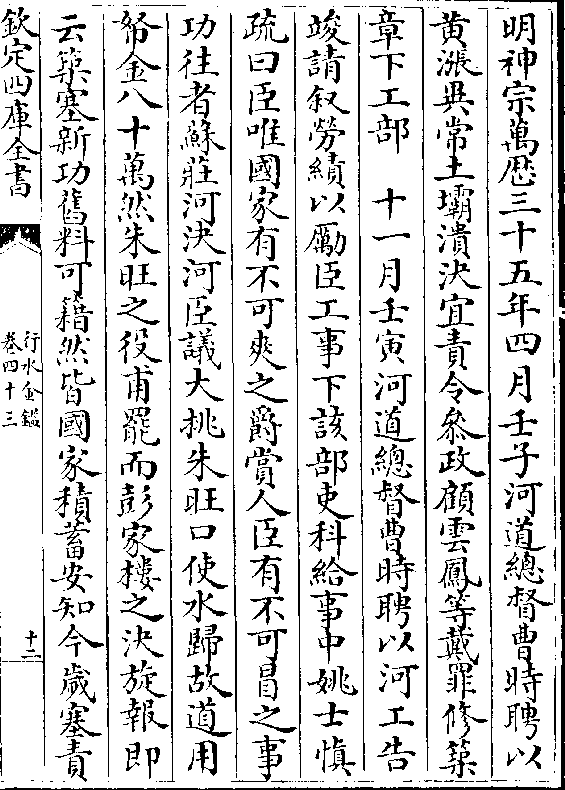 明神宗萬厯三十五年四月壬子河道總督曹時聘以
黄漲異常土壩潰決宜責令叅政顧雲鳳等戴罪修築
章下工部　十一月壬寅河道總督曹時聘以河工告
竣請叙勞績以勵臣工事下該部吏科給事中姚士慎
疏曰臣唯國家有不可爽之爵賞人臣有不可冒之事
功往者蘇莊河決河臣議大挑朱旺口使水歸故道用
帑金八十萬然朱旺之役甫罷而彭家樓之決旋報即
云築塞新功舊料可籍然皆國家積蓄安知今歲塞責
欽定四庫全書
行水金鑑
卷四十三
十二